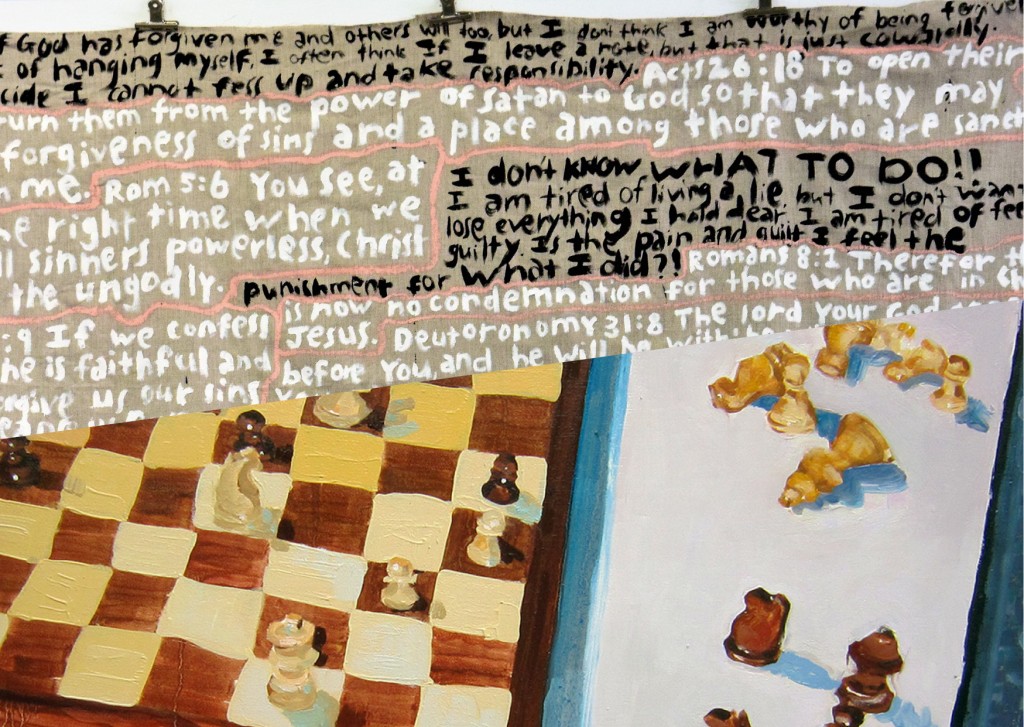 f God has forgiven me and others will too, but I dont think I am worthy of being forgive
of hanging myself, I often think If I leave a note, but that is just cowardly.
cide I cannot fess up and take responsibility. Acts 26:18 To open their
turn them from the power of Satan to God so that they may
forgiveness of sins and a place among those who are sanct
me. Rom 5:6 You see, at
he right time when we
ll sinners powerless, Christ
the ungodly.
I don't KNOW WHAT TO DO!!
I am tired of living a lie, but I don't wan
lose everything I hold dear. I am tired of fee
guilty. Is the pain and guilt I feel the
punishment for What I did?! Romans 8:1 Therefor t
is now no condemnation for those who are in Ch
Jesus. Deutoronomy 31:8 The lord Your God
before You, and he will be with
:9 If we confess
he is faithful and
orgive us our sins